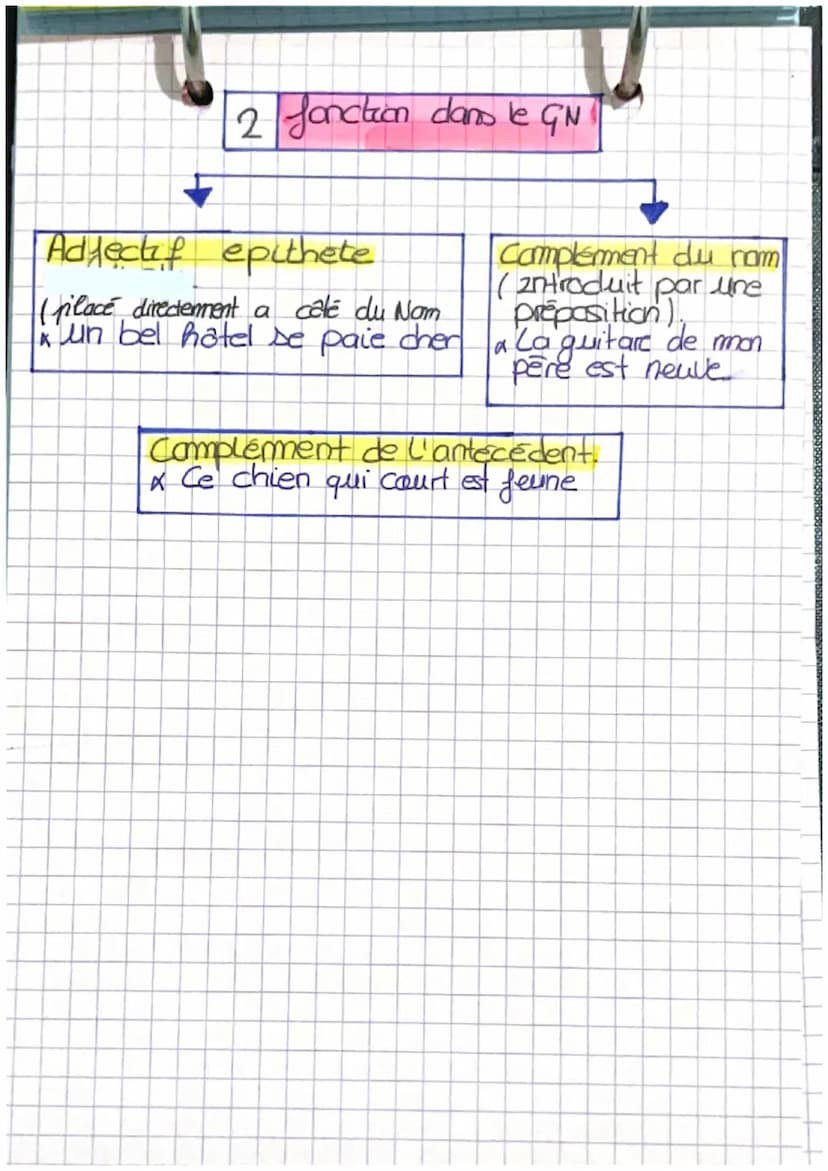 2 fonction dans le GN
Adjectif epithete
(placé directement a côté du Nom
× un bel hôtel se paie cher
Complément du nom
(introduit par une
préposition).
× La guitare de mon
père est neuve
Complément de l'antécédent.
× Ce chien qui court est jeune